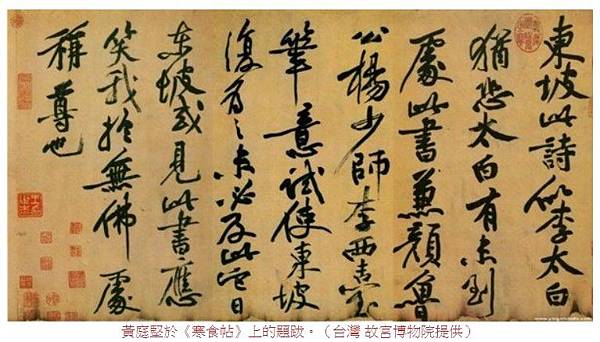 東坡此詩似李太白
猶恐太白有未到
處此書兼顏魯
公楊少師李西臺
筆意試使東坡
復為之未必及此它日
東坡或見此書應
笑我於無佛處
稱尊也
黃庭堅於《寒食帖》上的題跋。（台灣 故宮博物院提供）